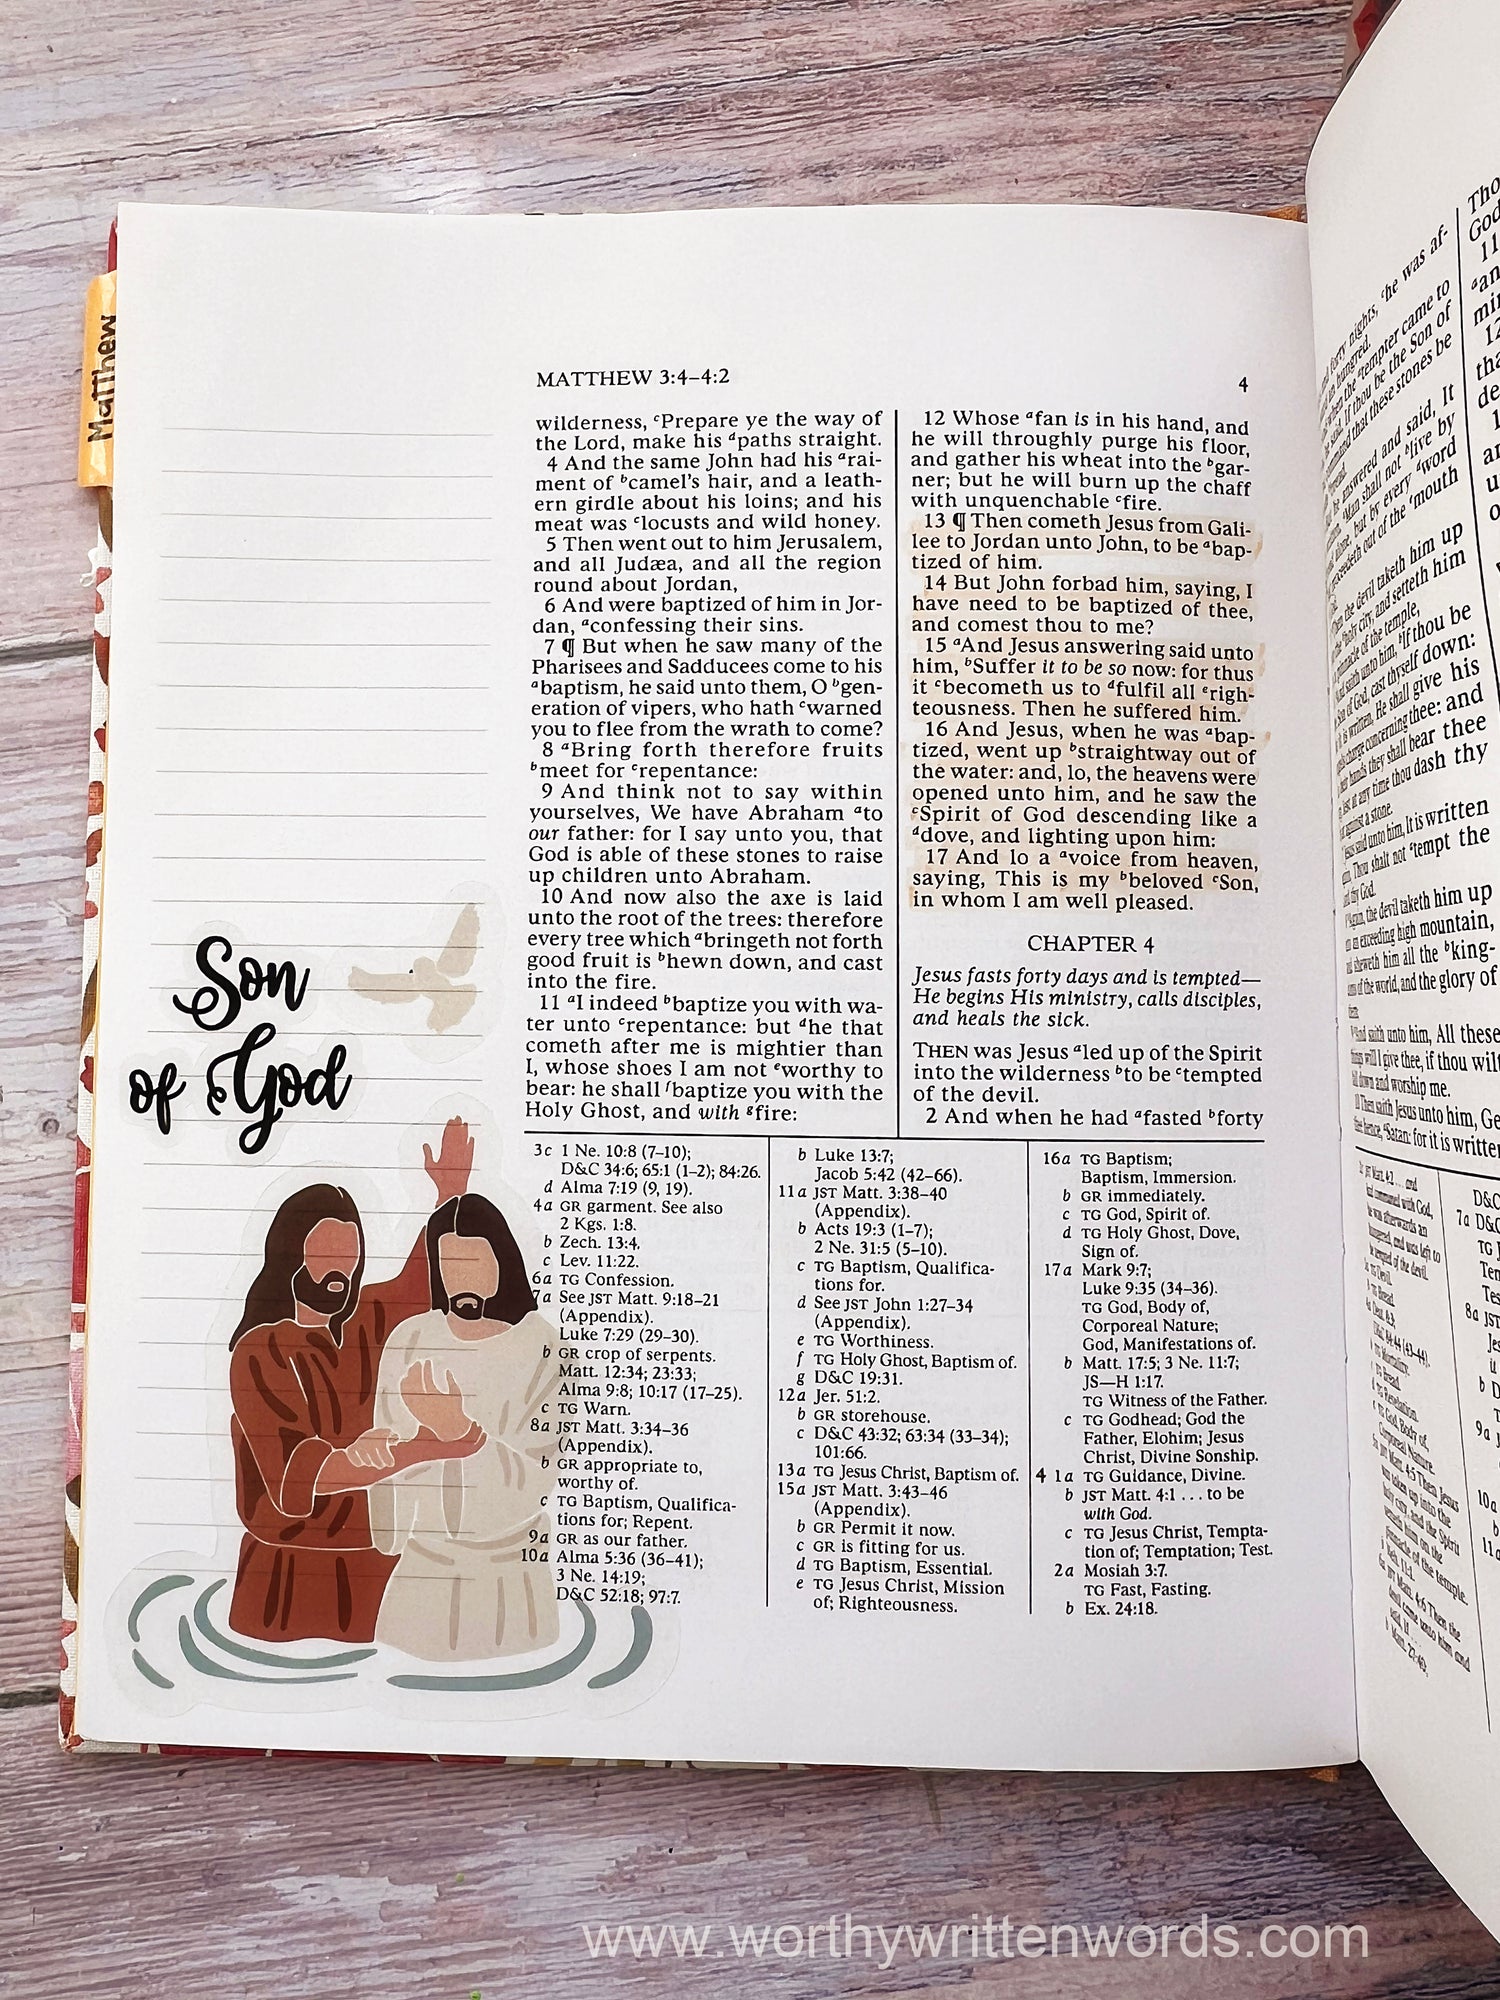 Matthew
MATTHEW 3:4–4:2
4
wilderness, cPrepare ye the way of
the Lord, make his dpaths straight.
4 And the same John had his arai-
ment of bcamel's hair, and a leath-
ern girdle about his loins; and his
meat was clocusts and wild honey.
5 Then went out to him Jerusalem,
and all Judæa, and all the region
round about Jordan,
6 And were baptized of him in Jor-
dan, aconfessing their sins.
7 ¶ But when he saw many of the
Pharisees and Sadducees come to his
abaptism, he said unto them, O bgen-
eration of vipers, who hath cwarned
you to flee from the wrath to come?
8 aBring forth therefore fruits
bmeet for crepentance:
9 And think not to say within
yourselves, We have Abraham ato
our father: for I say unto you, that
God is able of these stones to raise
up children unto Abraham.
10 And now also the axe is laid
unto the root of the trees: therefore
every tree which abringeth not forth
good fruit is bhewn down, and cast
into the fire.
11 aI indeed bbaptize you with wa-
ter unto crepentance: but dhe that
cometh after me is mightier than
I, whose shoes I am not eworthy to
bear: he shall fbaptize you with the
Holy Ghost, and with gfire:
12 Whose afan is in his hand, and
he will throughly purge his floor,
and gather his wheat into the bgar-
ner; but he will burn up the chaff
with unquenchable cfire.
13 ¶ Then cometh Jesus from Gali-
lee to Jordan unto John, to be abap-
tized of him.
14 But John forbad him, saying, I
have need to be baptized of thee,
and comest thou to me?
15 aAnd Jesus answering said unto
him, bSuffer it to be so now: for thus
it cbecometh us to dfulfil all erigh-
teousness. Then he suffered him.
16 And Jesus, when he was abap-
tized, went up bstraightway out of
the water: and, lo, the heavens were
opened unto him, and he saw the
cSpirit of God descending like a
ddove, and lighting upon him:
17 And lo a avoice from heaven,
saying, This is my bbeloved cSon,
in whom I am well pleased.
CHAPTER 4
Jesus fasts forty days and is tempted—
He begins His ministry, calls disciples,
and heals the sick.
THEN was Jesus aled up of the Spirit
into the wilderness bto be ctempted
of the devil.
2 And when he had afasted bforty
Son
of God
3c 1 Ne. 10:8 (7–10);
D&C 34:6; 65:1 (1–2); 84:26.
d Alma 7:19 (9, 19).
4a GR garment. See also
2 Kgs. 1:8.
b Zech. 13:4.
c Lev. 11:22.
6a TG Confession.
7a See JST Matt. 9:18–21
(Appendix).
Luke 7:29 (29–30).
b GR crop of serpents.
Matt. 12:34; 23:33;
Alma 9:8; 10:17 (17–25).
c TG Warn.
8a JST Matt. 3:34–36
(Appendix).
b GR appropriate to,
worthy of.
c TG Baptism, Qualifica-
tions for; Repent.
9a GR as our father.
10a Alma 5:36 (36–41);
3 Ne. 14:19;
D&C 52:18; 97:7.
b Luke 13:7;
Jacob 5:42 (42–66).
11a JST Matt. 3:38–40
(Appendix).
b Acts 19:3 (1–7);
2 Ne. 31:5 (5–10).
c TG Baptism, Qualifica-
tions for.
d See JST John 1:27–34
(Appendix).
e TG Worthiness.
f TG Holy Ghost, Baptism of.
g D&C 19:31.
12a Jer. 51:2.
b GR storehouse.
c D&C 43:32; 63:34 (33–34);
101:66.
13a TG Jesus Christ, Baptism of.
15a JST Matt. 3:43–46
(Appendix).
b GR Permit it now.
c GR is fitting for us.
d TG Baptism, Essential.
e TG Jesus Christ, Mission
of; Righteousness.
16a TG Baptism;
Baptism, Immersion.
b GR immediately.
c TG God, Spirit of.
d TG Holy Ghost, Dove,
Sign of.
17a Mark 9:7;
Luke 9:35 (34–36).
TG God, Body of,
Corporeal Nature;
God, Manifestations of.
b Matt. 17:5; 3 Ne. 11:7;
JS—H 1:17.
TG Witness of the Father.
c TG Godhead; God the
Father, Elohim; Jesus
Christ, Divine Sonship.
4 1a TG Guidance, Divine.
b JST Matt. 4:1 . . . to be
with God.
c TG Jesus Christ, Tempta-
tion of; Temptation; Test.
2a Mosiah 3:7.
TG Fast, Fasting.
b Ex. 24:18.
forty nights, che was af-
tempter came to
If thou be the Son of
command that these stones be
answered and said, It
Man shall not blive by
but by every dword
out of the emouth
the devil taketh him up
holy city, and setteth him
pinnacle of the temple,
And saith unto him, If thou be
Son of God, cast thyself down:
is written, He shall give his
charge concerning thee: and
hands they shall bear thee
at any time thou dash thy
against a stone.
Jesus said unto him, It is written
Thou shalt not atempt the
thy God.
the devil taketh him up
an exceeding high mountain,
and sheweth him all the bking-
of the world, and the glory of
them;
And saith unto him, All these
things will I give thee, if thou wilt
fall down and worship me.
Then saith Jesus unto him, Ge
hence, Satan: for it is written
www.worthywrittenwords.com